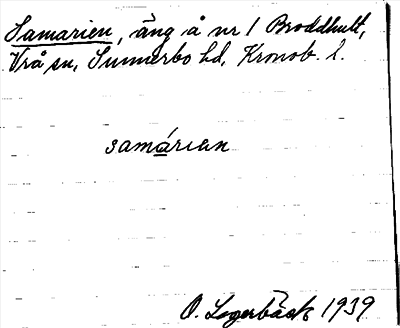 Samarien, äng å nr 1 Broddhult,
Vrå sn, Sunnerbo hd, Kronob. l.
samárian
O. Lagerbäck 1939